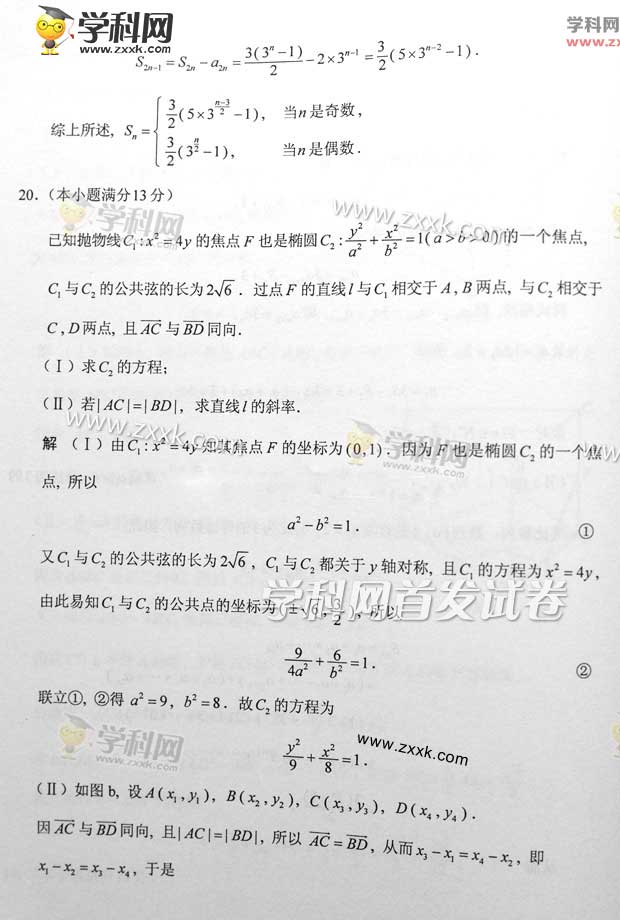 学科网
www.zxxk.com
学科网
www.zxxk
S₂ₙ₋₁ = S₂ₙ − a₂ₙ = 3(3ⁿ−1)/2 − 2×3ⁿ⁻¹ = 3/2(5×3ⁿ⁻²−1).
综上所述, Sₙ = { 3/2(5×3^((n−3)/2)−1), 当n是奇数,
3/2(3^(n/2)−1), 当n是偶数.
20.(本小题满分13分)
学科网
www.zxxk.com
已知抛物线C₁:x²=4y的焦点F也是椭圆C₂:y²/a²+x²/b²=1(a>b>0)的一个焦点,
C₁与C₂的公共弦的长为2√6. 过点F的直线l与C₁相交于A,B两点, 与C₂相交于
C,D两点, 且AC→与BD→同向.
(Ⅰ)求C₂的方程;
(Ⅱ)若|AC|=|BD|, 求直线l的斜率.
www.zxxk.com
学科网
解 (Ⅰ)由C₁:x²=4y知其焦点F的坐标为(0,1). 因为F也是椭圆C₂的一个焦
点, 所以
a²−b²=1. ①
又C₁与C₂的公共弦的长为2√6, C₁与C₂都关于y轴对称, 且C₁的方程为x²=4y,
由此易知C₁与C₂的公共点的坐标为(±√6, 3/2), 所以
学科网首发试卷
9/4a²+6/b²=1. ②
联立①, ②得a²=9, b²=8. 故C₂的方程为
学科网
zxxk.com
www.zxxk.com
y²/9+x²/8=1.
(Ⅱ)如图b, 设A(x₁,y₁), B(x₂,y₂), C(x₃,y₃), D(x₄,y₄).
因AC→与BD→同向, 且|AC|=|BD|, 所以AC→=BD→, 从而x₃−x₁=x₄−x₂, 即
x₁−x₂=x₃−x₄, 于是